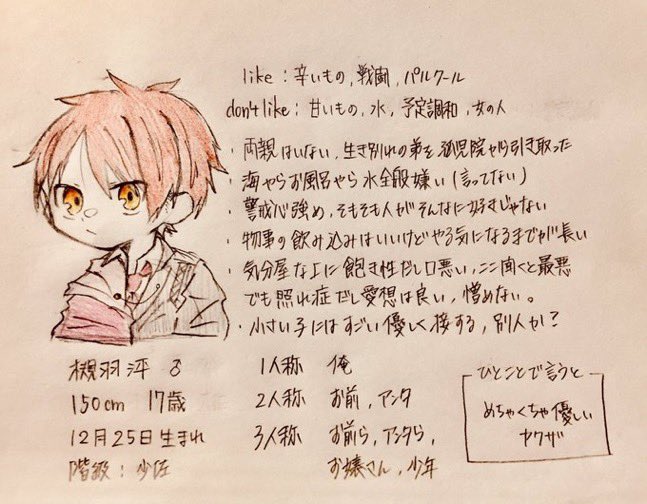 like : 辛いもの, 戦闘, パルクール
don't like : 甘いもの, 水, 予定調和, 女の人
・両親はいない, 生き別れの弟を孤児院から引き取った
・海やらお風呂やら水全般嫌い (言ってない)
・警戒心強め, そもそも人がそんなに好きじゃない
・物事の飲み込みはいいけどやる気になるまでが長い
・気分屋な上に飽き性だし口悪い, ここ聞くと最悪
でも照れ症だし愛想は良い, 憎めない。
・小さい子にはすごい優しく接する, 別人か?
槻羽 泙 ♂
150cm 17歳
12月25日生まれ
階級 : 少佐
1人称 俺
2人称 お前, アンタ
3人称 お前ら, アンタら,
お嬢さん, 少年
ひとことで言うと
めちゃくちゃ優しい
ヤクザ